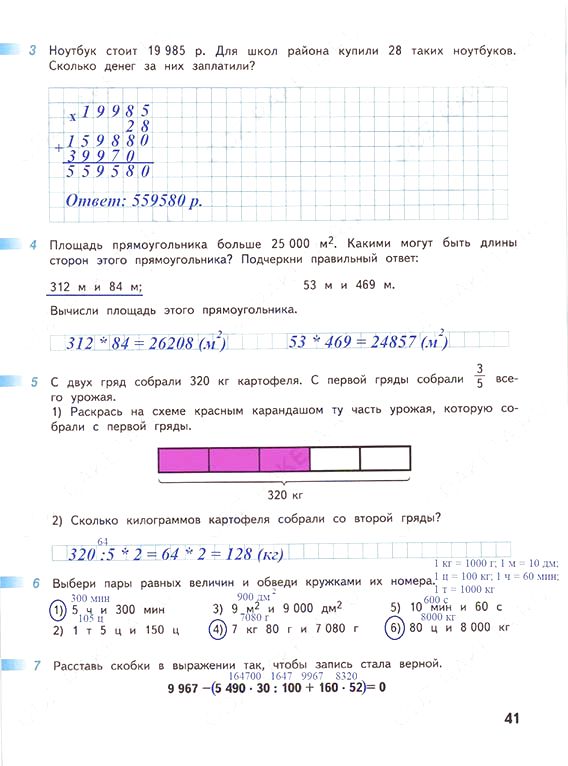 3 Ноутбук стоит 19 985 р. Для школ района купили 28 таких ноутбуков.
Сколько денег за них заплатили?
х 1 9 9 8 5
2 8
+ 1 5 9 8 8 0
3 9 9 7 0
5 5 9 5 8 0
Ответ: 559580 р.
4 Площадь прямоугольника больше 25 000 м². Какими могут быть длины
сторон этого прямоугольника? Подчеркни правильный ответ:
312 м и 84 м; 53 м и 469 м.
Вычисли площадь этого прямоугольника.
312 * 84 = 26208 (м²) 53 * 469 = 24857 (м²)
5 С двух гряд собрали 320 кг картофеля. С первой гряды собрали 3/5 все-
го урожая.
1) Раскрась на схеме красным карандашом ту часть урожая, которую со-
брали с первой гряды.
320 кг
2) Сколько килограммов картофеля собрали со второй гряды?
64
320 :5 * 2 = 64 * 2 = 128 (кг)
1 кг = 1000 г; 1 м = 10 дм;
1 ц = 100 кг; 1 ч = 60 мин;
1 т = 1000 кг
6 Выбери пары равных величин и обведи кружками их номера.
300 мин 900 дм² 600 с
1) 5 ч и 300 мин 3) 9 м² и 9 000 дм² 5) 10 мин и 60 с
105 ц 7080 г 8000 кг
2) 1 т 5 ц и 150 ц 4) 7 кг 80 г и 7 080 г 6) 80 ц и 8 000 кг
7 Расставь скобки в выражении так, чтобы запись стала верной.
164700 1647 9967 8320
9 967 – (5 490 · 30 : 100 + 160 · 52) = 0
41